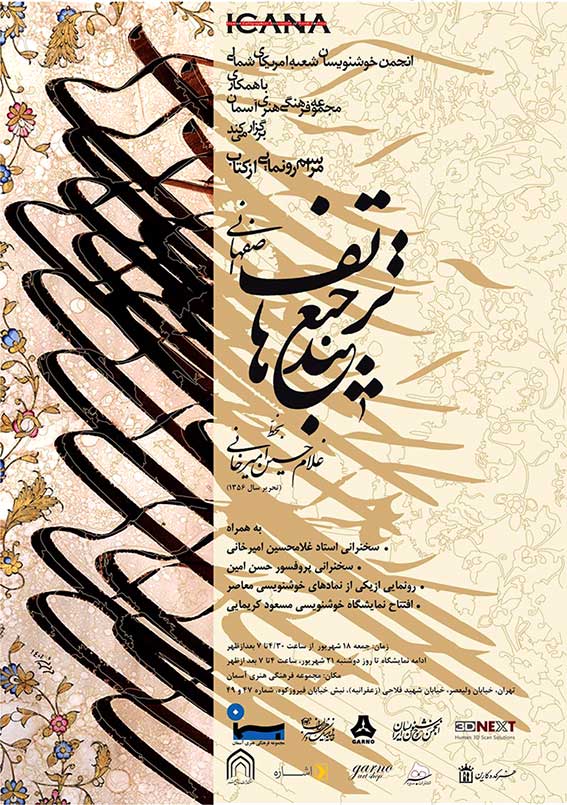 ICANA
انجمن خوشنویسان شعبه امریکای شمالی
با همکاری
مجموعه فرهنگی هنری آسمان
برگزار می کند
مراسم رونمایی از کتاب
ترجیع بند هاتف
اصفهانی
بخط
غلامحسین امیرخانی
(تحریر سال ۱۳۵۶)
به همراه
• سخنرانی استاد غلامحسین امیرخانی
• سخنرانی پروفسور حسن امین
• رونمایی از یکی از نمادهای خوشنویسی معاصر
• افتتاح نمایشگاه خوشنویسی مسعود کریمایی
زمان: جمعه ۱۸ شهریور از ساعت ۴/۳۰ تا ۷ بعدازظهر
ادامه نمایشگاه تا روز دوشنبه ۲۱ شهریور، ساعت ۴ تا ۷ بعدازظهر
مکان: مجموعه فرهنگی هنری آسمان
تهران، خیابان ولیعصر، خیابان شهید فلاحی (زعفرانیه)، نبش خیابان فیروزکوه، شماره ۴۷ و ۴۹
مجموعه فرهنگی هنری آسمان
GARNO
انجمن خوشنویسان ایران
3DNEXT
Human 3D Scan Solutions
اشاره
garno
art shop
هنرکده کارین